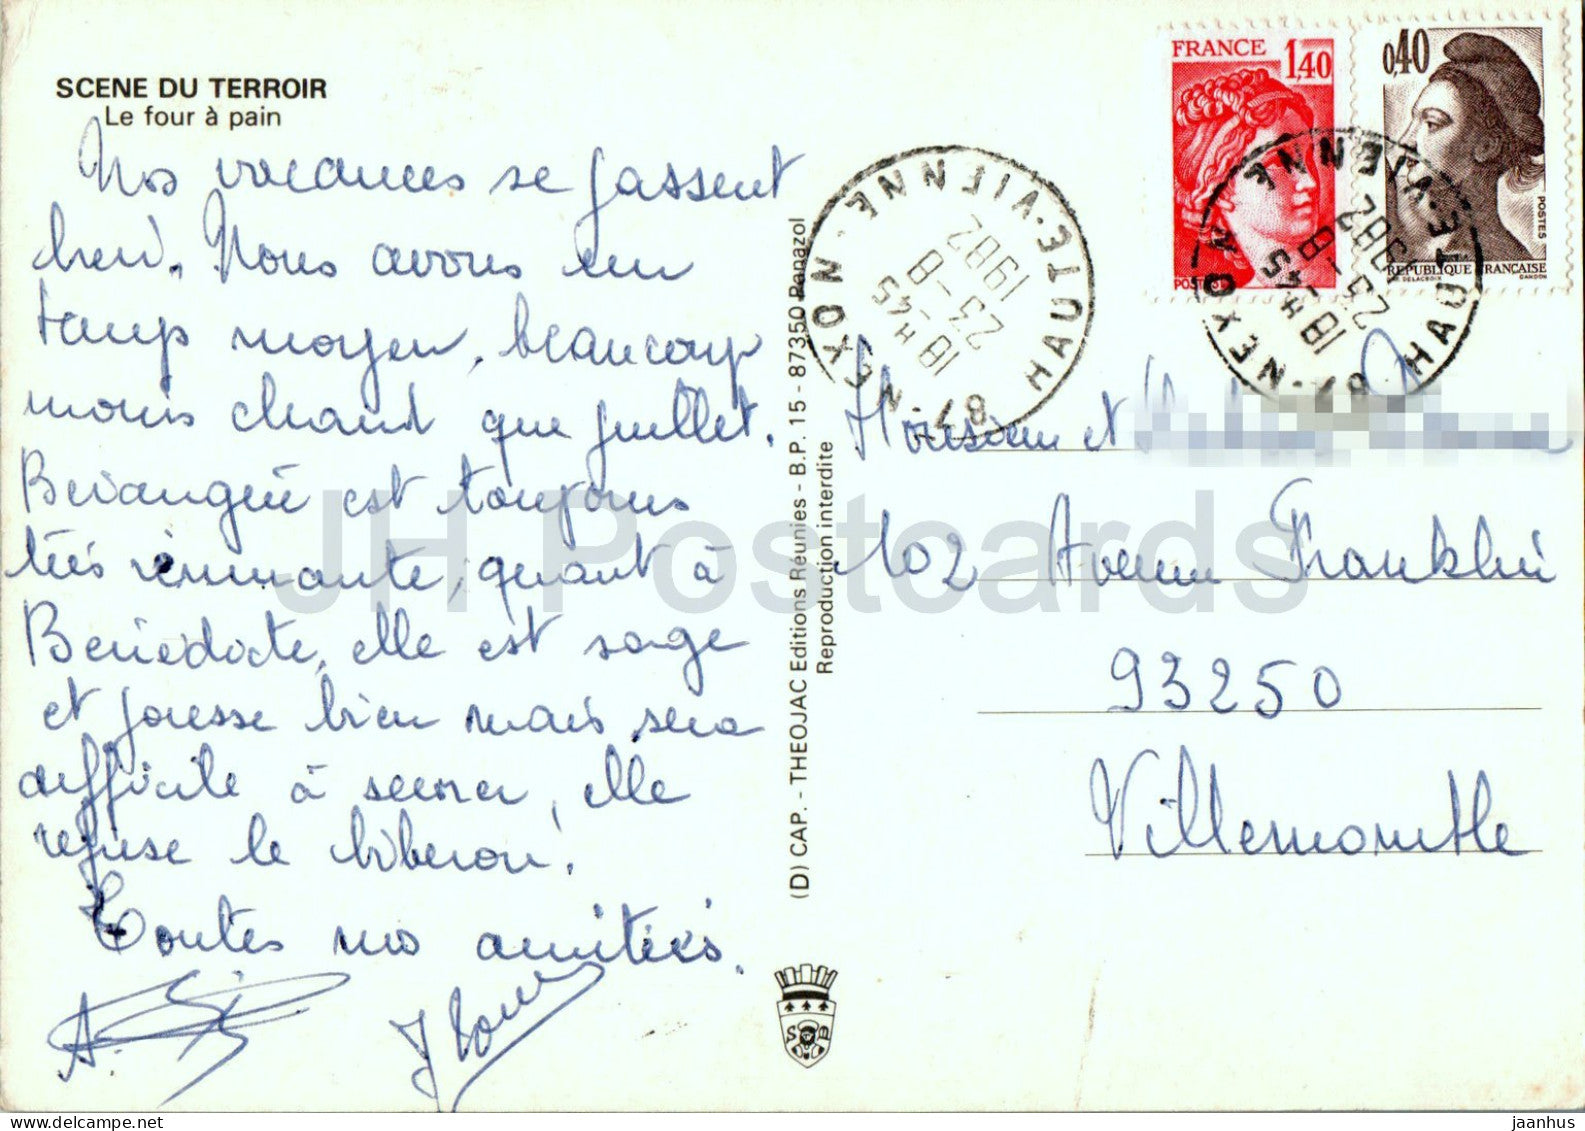 SCENE DU TERROIR
Le four à pain
Nos vacances se passent
bien. Nous avons un
temps moyen, beaucoup
moins chaud que juillet.
Bérangère est toujours
très remuante, quant à
Bénédicte, elle est sage
et pousse bien mais sera
difficile à sevrer, elle
refuse le biberon.
Toutes nos amitiés.
(D) CAP. - THEOJAC Editions Réunies - B.P. 15 - 87350 Panazol
Reproduction interdite
FRANCE 1,40
POSTES
0,40
POSTES
REPUBLIQUE FRANÇAISE
DE DELACROIX GANDON
87 NEXON HAUTE-VIENNE
18 H 45
23 - 8
1982
87 NEXON HAUTE-VIENNE
18 H 45
23 - 8
1982
Monsieur et
102 Avenue Franklin
93250
Villemomble
JH Postcards
jaanhus